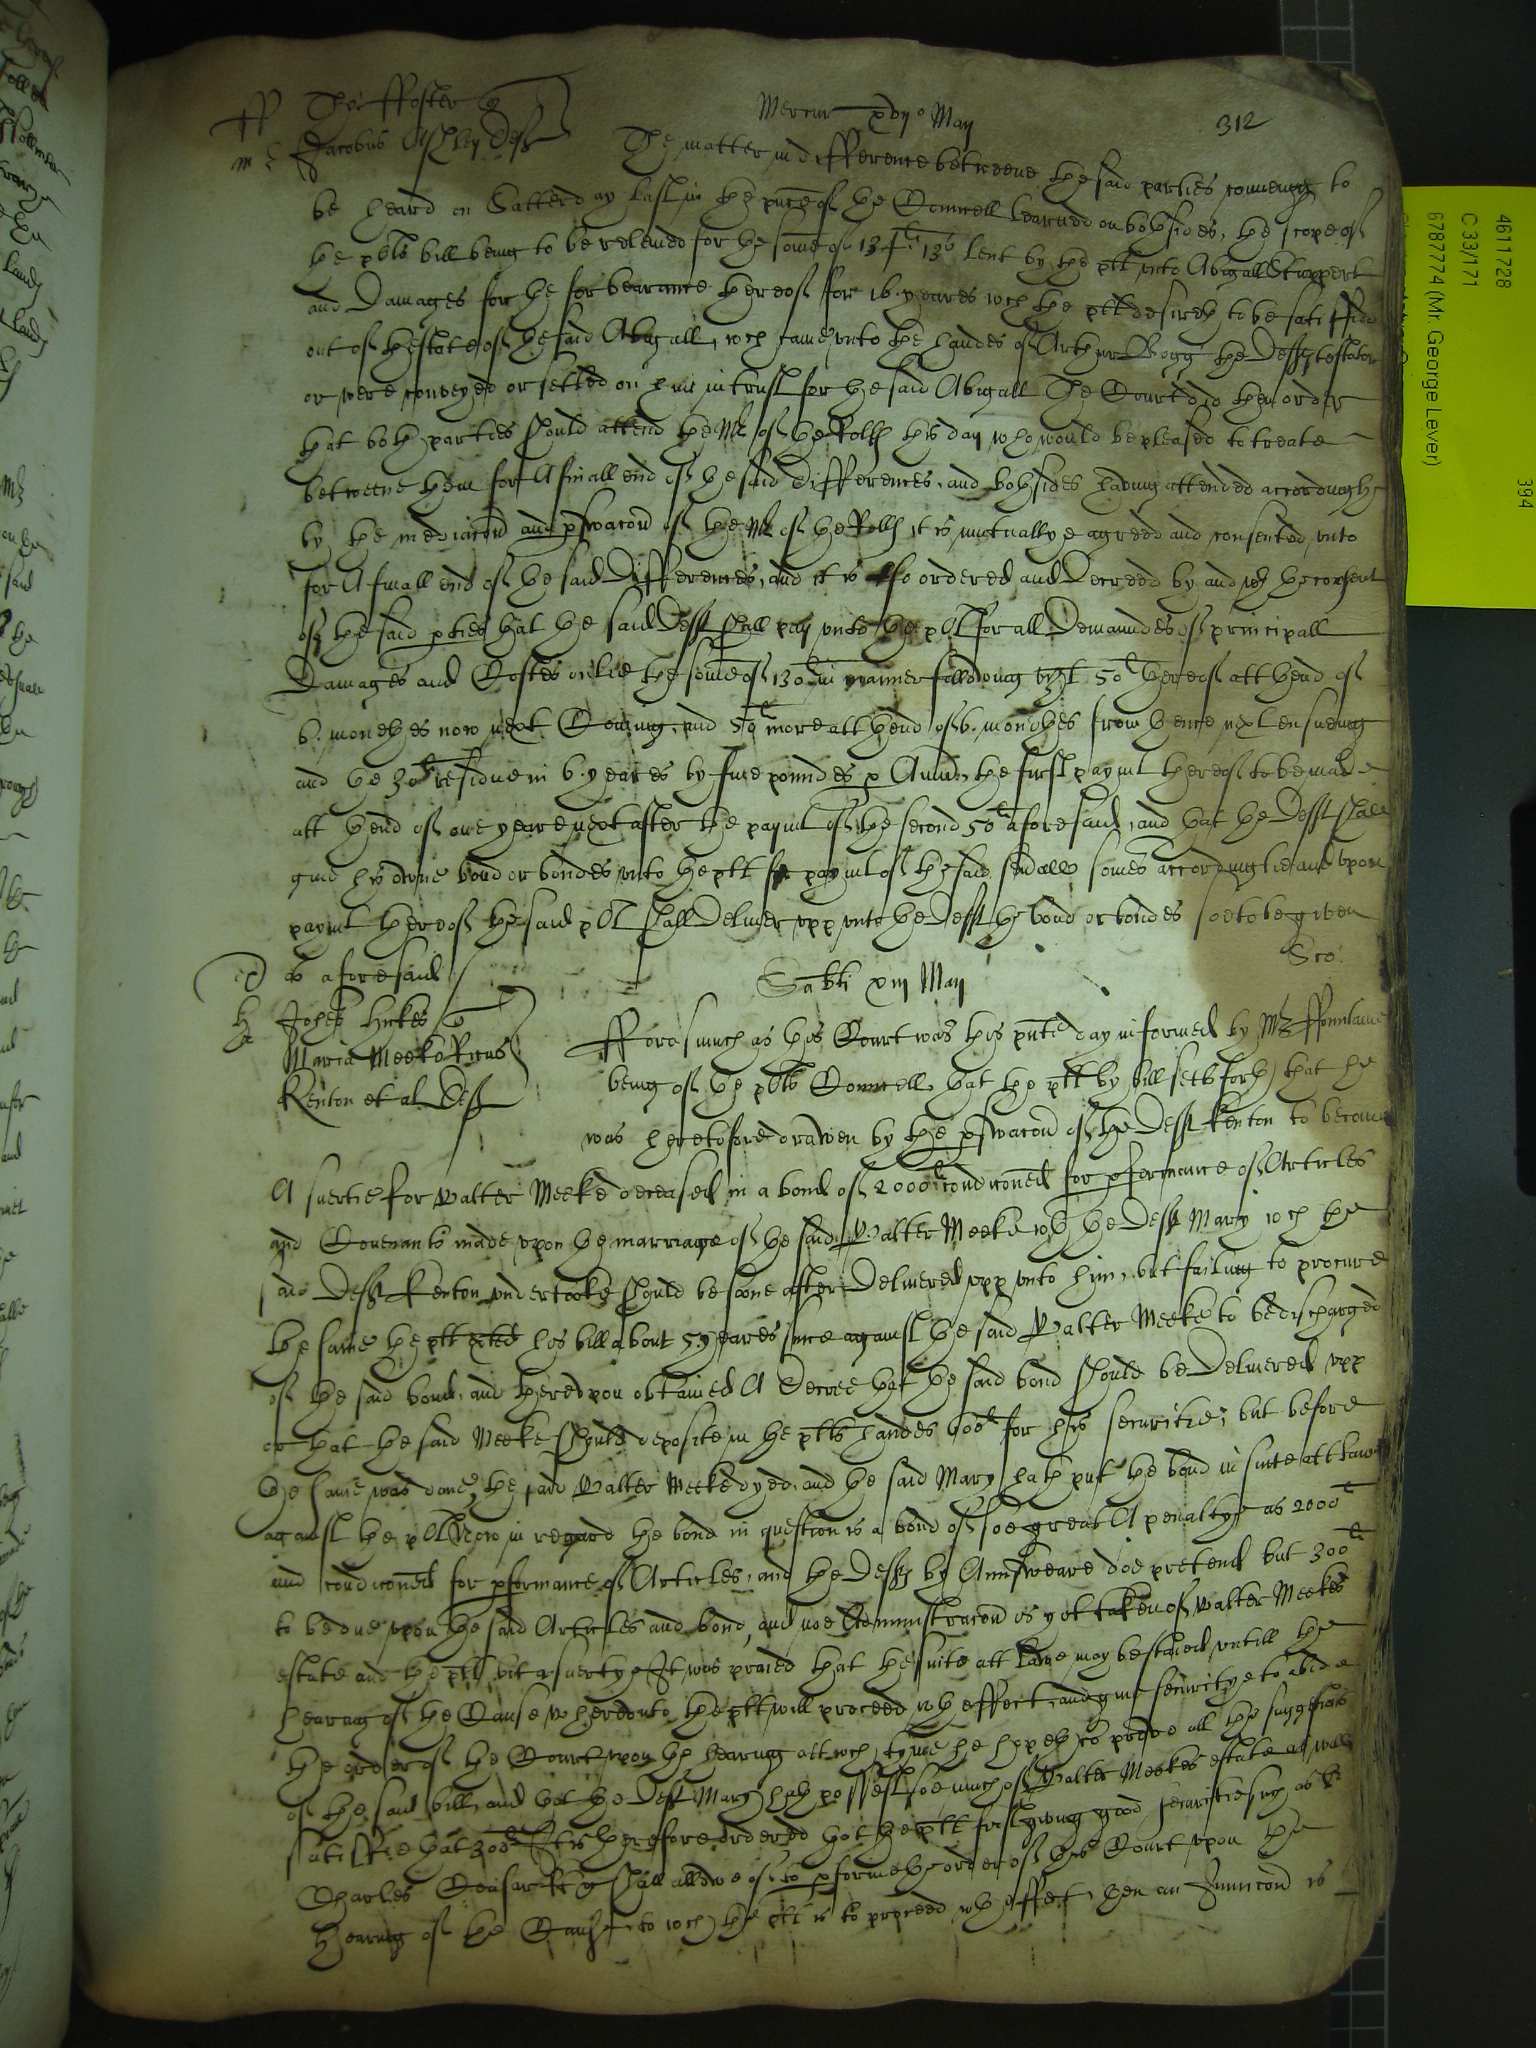 Mercur xvijo Maij
312
ff Tho: ffoster q
Jacobus Ashley deft
The matter in difference betweene the said parties comeing to
be heard on Satterday last in the pnce of the Councell learned on both sides, the scope of
the plts bill being to be releived for the some of 134li 13s lent by the plt vnto Abigall
and Damages for the forbearance thereof for 16 yeares wch the plt desireth to be satisfied
out of thestate of the said Abigall, wch came vnto the handes of Arthur the defts testator
or were conveyed or setled on him in trust for the said Abigall The Court did then order
that both parties should attend the Mr of the Rolls this day who would be pleased to treate
betweene them for A finall end of the said differences, and both sides haveing attended accordingly
by the mediacon and pswacon of the Mr of the Rolls it is mutuallye agreed and consented vnto
for A finall end of the said Differences, and it is also ordered and Decreed by and wth the consent
of the said pties that the said Deft shall pay vnto the plt for all Demaundes of principall
Damages and Costes onlie the some of 130li in manner followeing vizt 50li thereof att thend of
6. monethes now next Comeing, and 50li more att thend of 6. monthes from thence next ensueing
and the 30li residue in 6. yeares by five poundes p Annu, the first paymt thereof to be made
att thend of one yeare next after the paymt of the second 50li aforesaid, and that the Deft shall
give his owne bond or bondes vnto the plt for paymt of the said sevall somes accordinglie and vpon
paymt thereof the said plt shall Deliver vpp vnto the Deft the bond or bondes soe to be given
as aforesaid
Sabti xiij Maij
Sco:
Johes Hickes q
Maria Meeke
Kenton et al Deft
fforasmuch as this Court was this pnte day informed by Mr ffountaine
being of the plts Councell, that the plt by bill setts forth that he
was heretofore drawen by the pswacon of the Deft Kenton to become
A suertie for Walter Meeke deceased in a bond of 2000li condiconed for pformance of Articles
and Covenants made vpon the marriage of the said Walter Meeke wth the Deft Mary wch the
said Deft Kenton vndertooke should be soone after Delivered vpp vnto him, but faileing to procure
the same the plt his bill about 5 yeares since against the said Walter Meeke to be discharged
of the said bond, and therevpon obtained A Decree that the said bond should be Delivered vpp
or that the said Meeke should deposite in the plts handes for his securitie; but before
the same was done, the said Walter Meeke dyed, and the said Mary hath put the bond in suite att lawe
against the plt Now in regard the bond in question is a bond of soe great A penaltye as 2000li
and condiconed for pformance of Articles, and the Defts by Answeare doe pretend but 300li
to be due vpon the said Articles and bond, and noe Administracon is yet taken of Walter Meekes
estate and the plt but a suertye It was praied that the suite att lawe may be staied vntill the
heareing of the Cause wherevnto the plt will proceed wth effect, and give securitye to abide
the order of the Court vpon the heareing att wch tyme he hopeth to prove all the suggestions
of the said bill, and that the Deft Mary hath possest soe much of Walter Meekes estate as will
satisfie that 300li It is therefore ordered that the plt first giveing good securitie such as Sr
Charles Ceasar Kt shall allowe of to pforme the order of this Court vpon the
heareing of the Cause to wch the plt is to proceed wth effect, then an Iniuncon is
4611728
C 33/171
6787774 (Mr. George Lever)
394